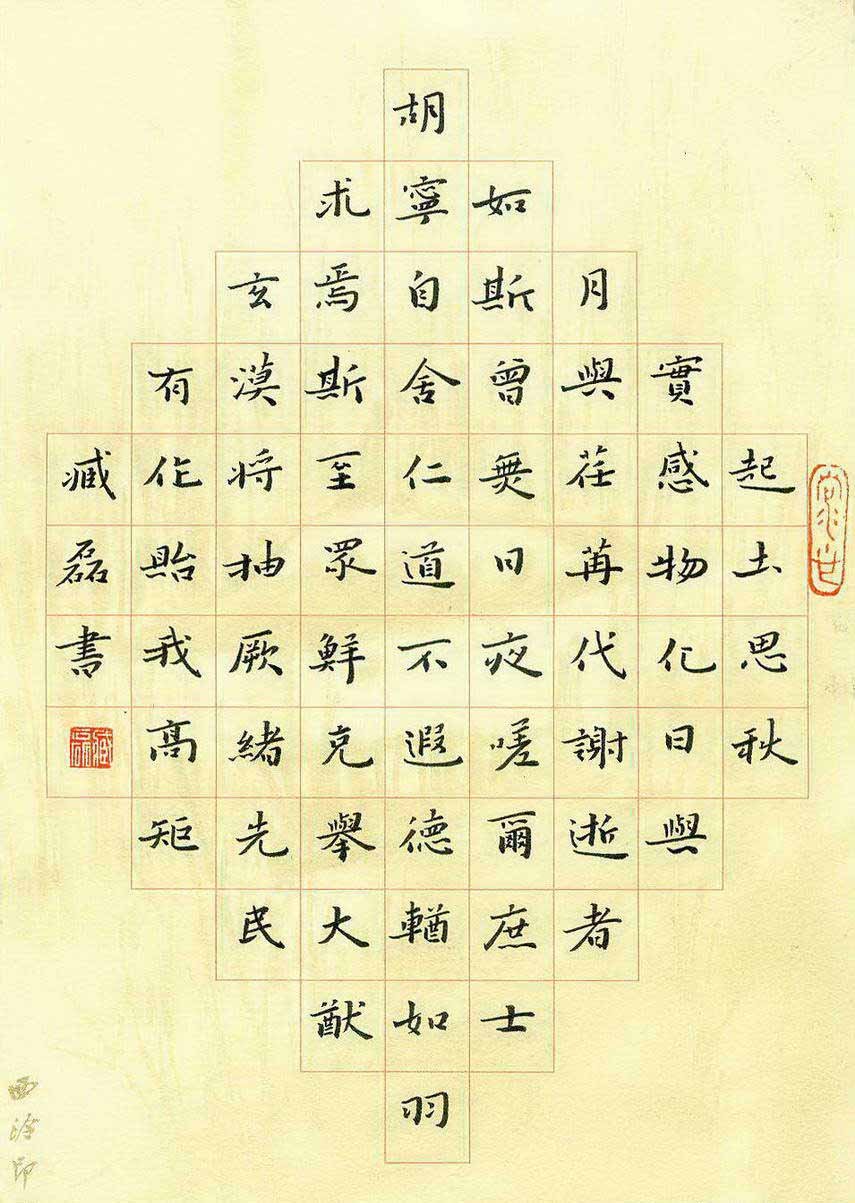 起土思秋
實感物化日與
月與荏苒代謝逝者
如斯曾無日夜嗟爾庶士
胡寧自舍仁道不遐德輶如羽
求焉斯至眾鮮克舉大猷
玄漠将抽厥緒先民
有作貽我高矩
臧磊書
臧磊
西泠印